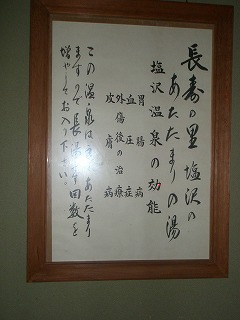 長寿の里塩沢の
あたたまりの湯
塩沢温泉の効能
胃腸病
血圧症
外傷後の治療
皮膚病
この温泉はよくあたたまり
ますので長湯せず回数を
増やしてお入り下さい。